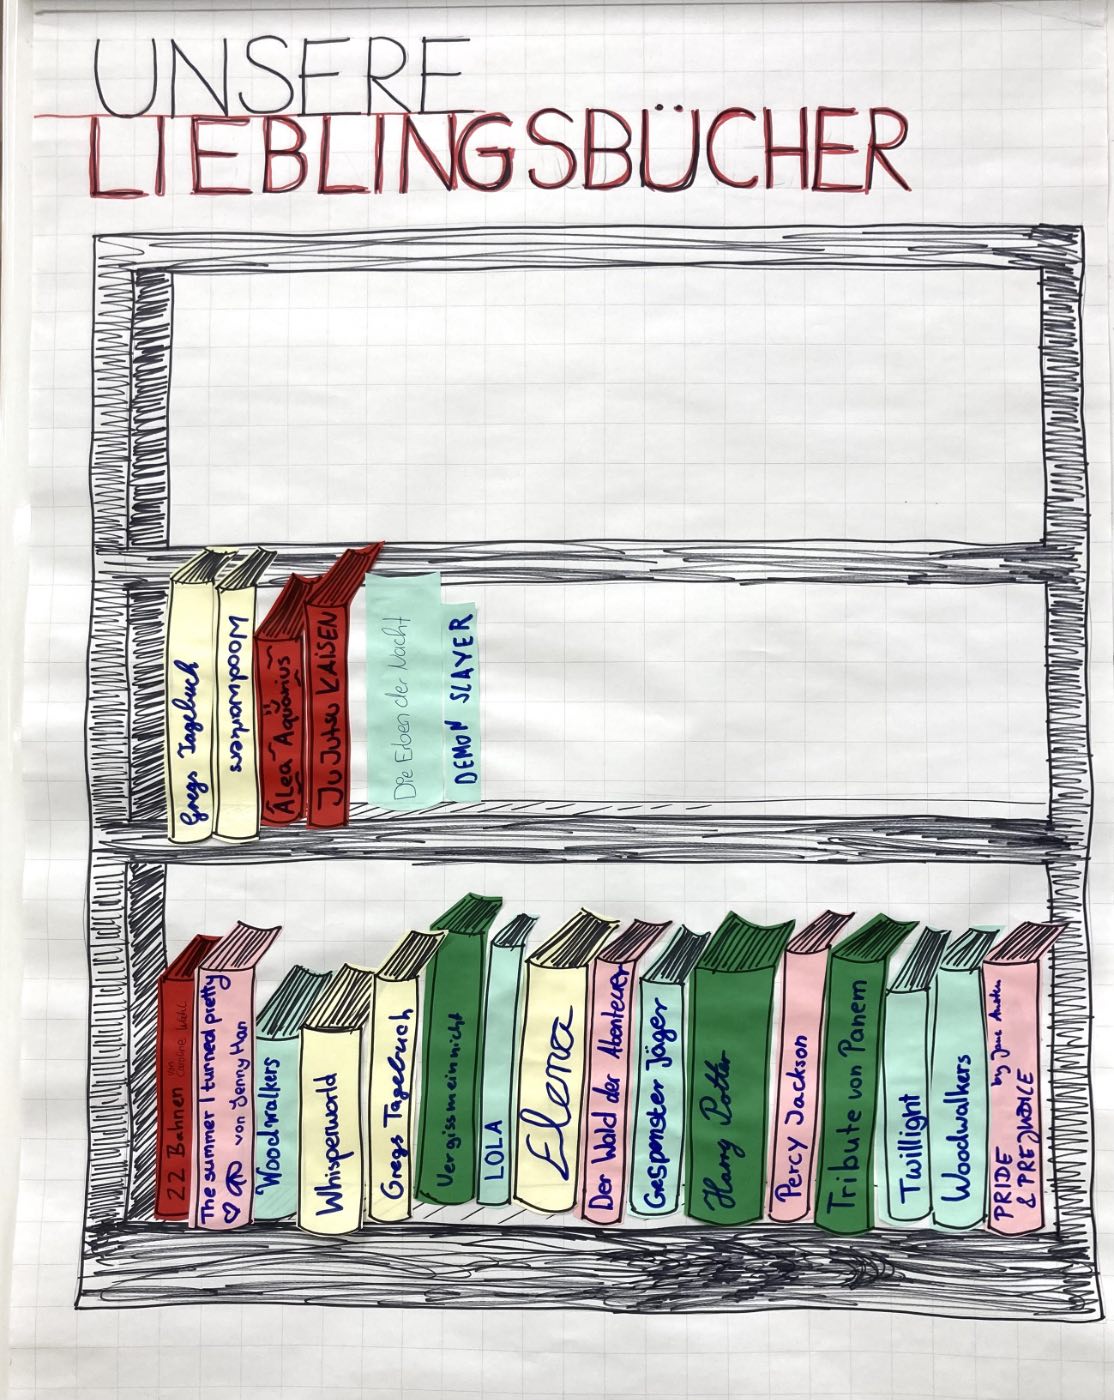 UNSERE
LIEBLINGSBÜCHER
Gregs Tagebuch
Woodwalkers
Alea Aquarius
JUJUTSU KAISEN
Die Erben der Nacht
DEMON SLAYER
22 Bahnen von Caroline Wahl
The summer I turned pretty
von Jenny Han
Woodwalkers
Whisperworld
Gregs Tagebuch
Vergissmeinnicht
LOLA
Elena
Der Wald der Abenteuer
Gespenster Jäger
Harry Potter
Percy Jackson
Tribute von Panem
Twillight
Woodwalkers
PRIDE by Jane Austen
& PREJUDICE